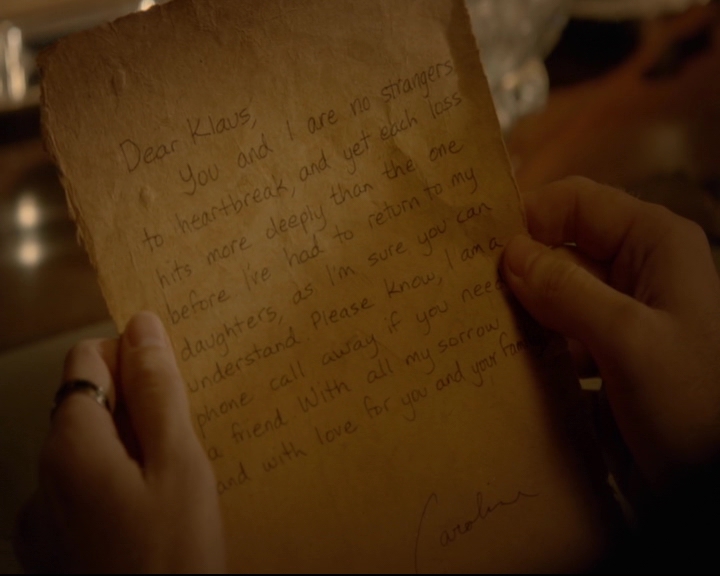 Dear Klaus,
You and I are no strangers
to heartbreak, and yet each loss
hits more deeply than the one
before I've had to return to my
daughters, as I'm sure you can
understand. Please know, I am a
phone call away if you need
a friend. With all my sorrow
and with love for you and your
Caroline